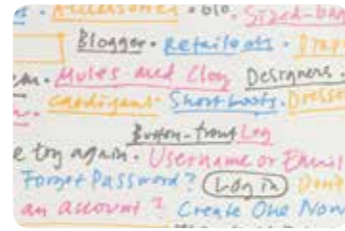 Accessories • Sized-bag
Blogger • Retail
• Mules and Clog Designers •
Cardigans • Short boots • Dresses
Button-front Leg
e try again • Username or Email
Forget Password? Log in Don't
an account? Create One Now